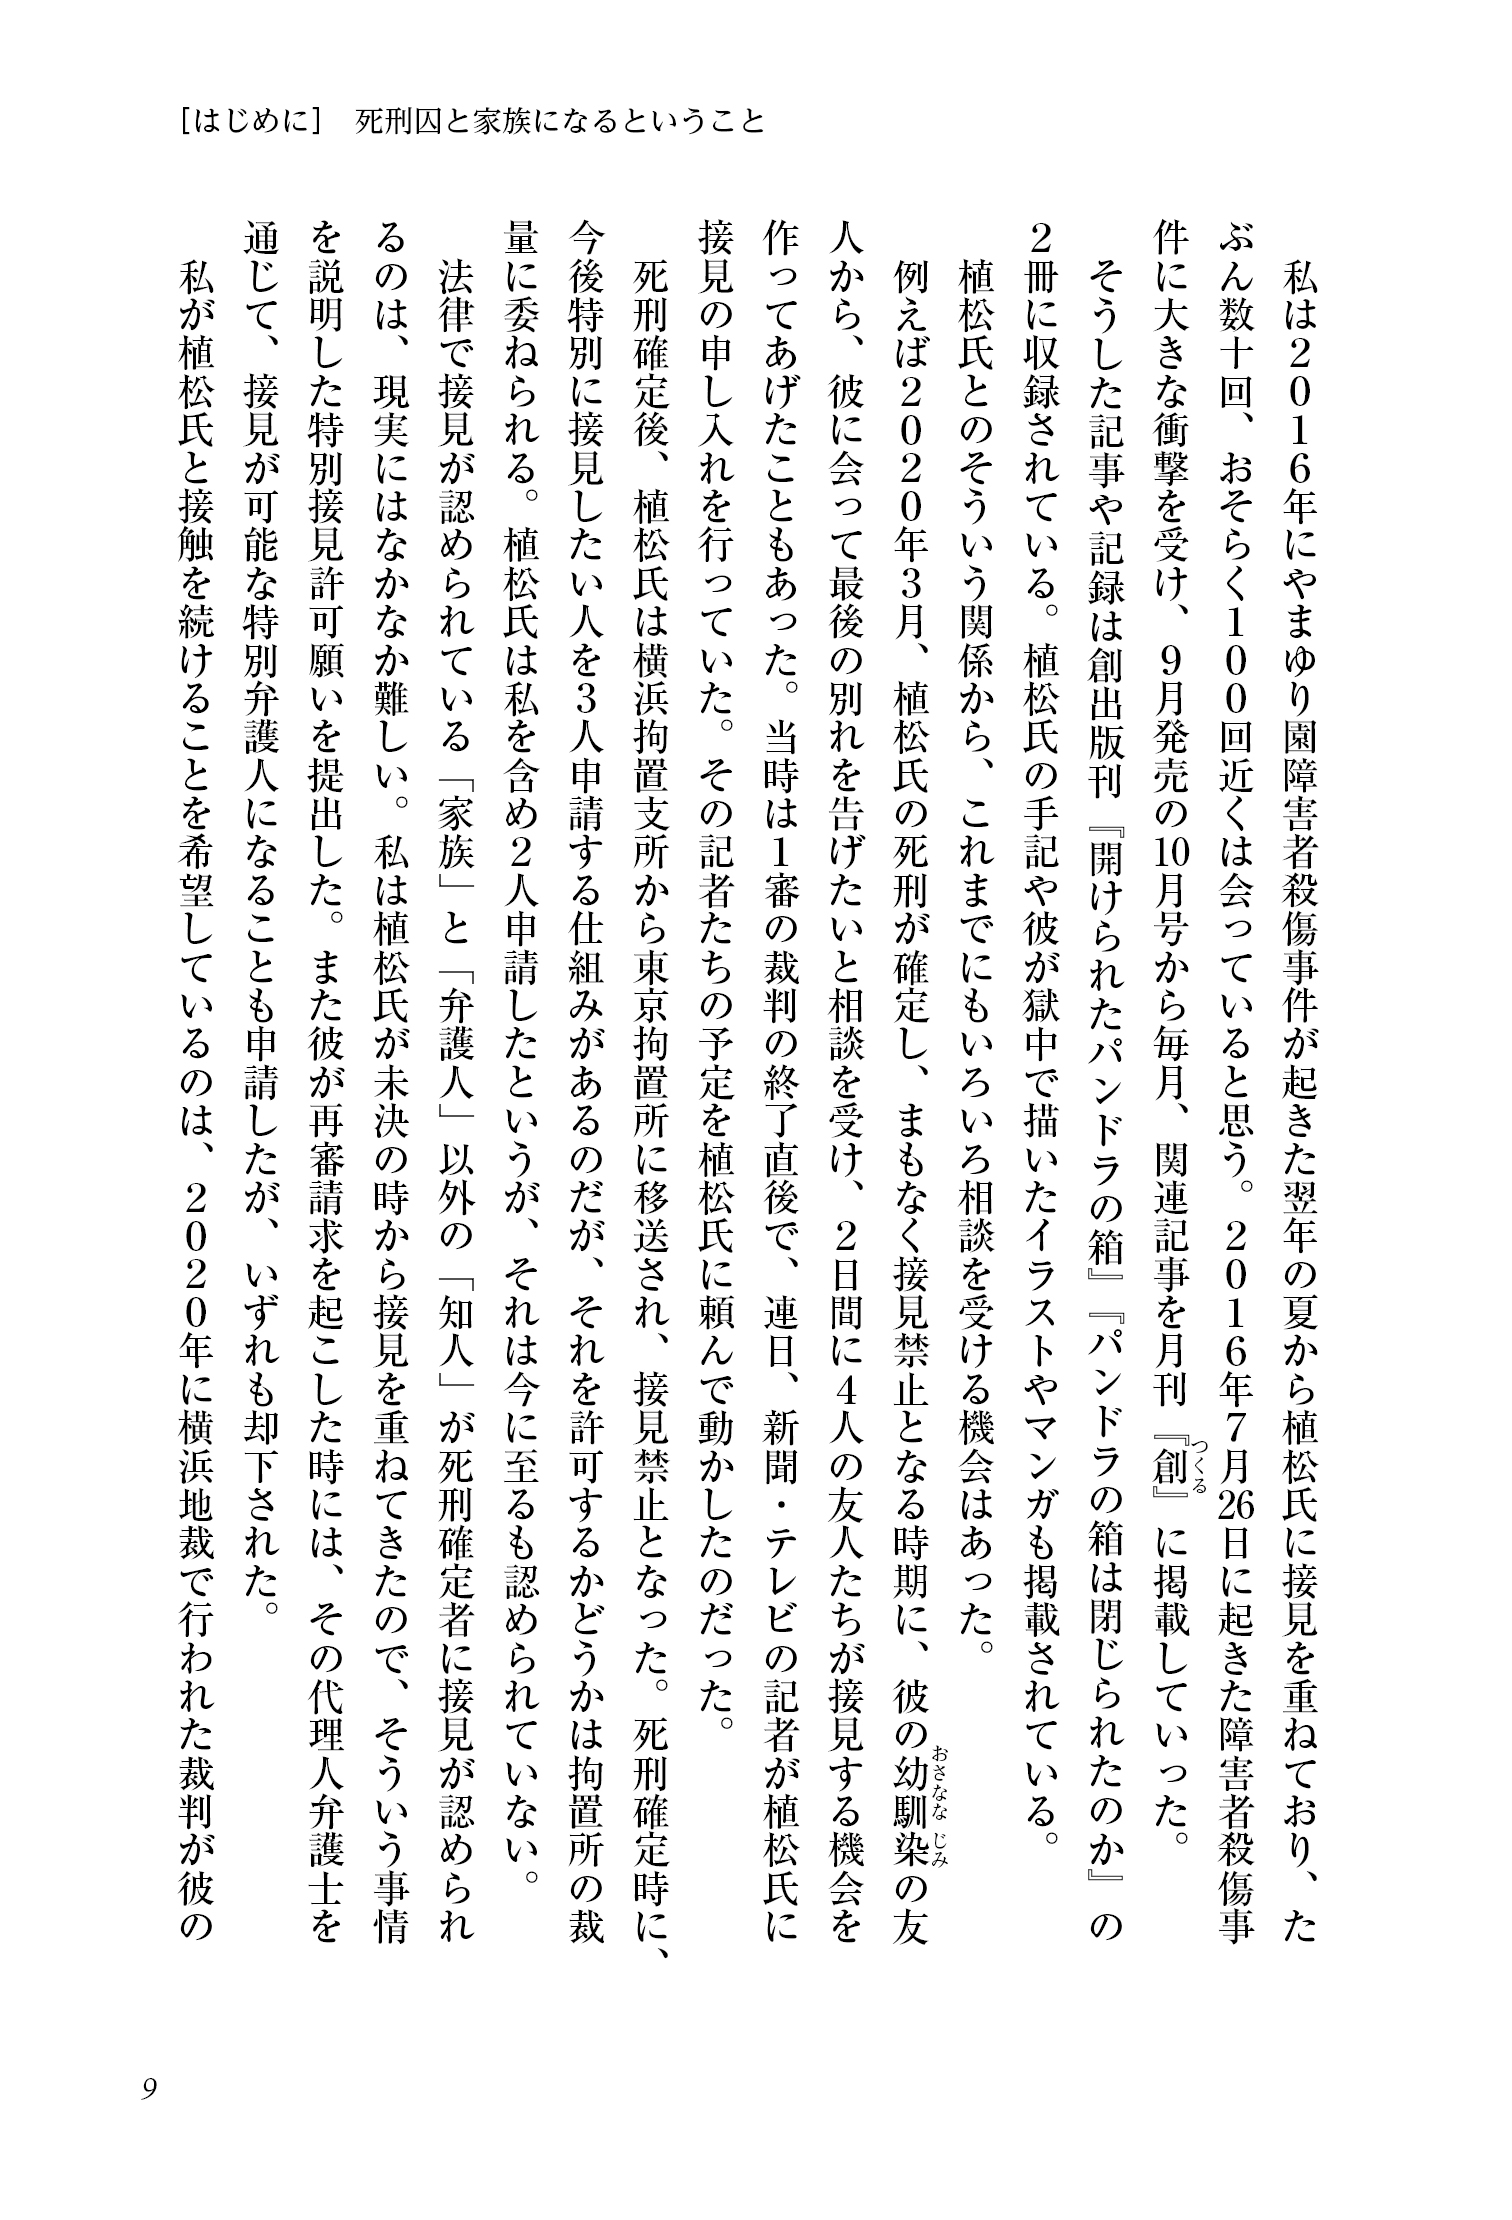 ［はじめに］　死刑囚と家族になるということ
　私は２０１６年にやまゆり園障害者殺傷事件が起きた翌年の夏から植松氏に接見を重ねており、た
ぶん数十回、おそらく１００回近くは会っていると思う。２０１６年７月26日に起きた障害者殺傷事
件に大きな衝撃を受け、９月発売の10月号から毎月、関連記事を月刊『創』に掲載していった。
つくる
　そうした記事や記録は創出版刊『開けられたパンドラの箱』『パンドラの箱は閉じられたのか』の
２冊に収録されている。植松氏の手記や彼が獄中で描いたイラストやマンガも掲載されている。
　植松氏とのそういう関係から、これまでにもいろいろ相談を受ける機会はあった。
　例えば２０２０年３月、植松氏の死刑が確定し、まもなく接見禁止となる時期に、彼の幼馴染の友
おさなな じみ
人から、彼に会って最後の別れを告げたいと相談を受け、２日間に４人の友人たちが接見する機会を
作ってあげたこともあった。当時は１審の裁判の終了直後で、連日、新聞・テレビの記者が植松氏に
接見の申し入れを行っていた。その記者たちの予定を植松氏に頼んで動かしたのだった。
　死刑確定後、植松氏は横浜拘置支所から東京拘置所に移送され、接見禁止となった。死刑確定時に、
今後特別に接見したい人を３人申請する仕組みがあるのだが、それを許可するかどうかは拘置所の裁
量に委ねられる。植松氏は私を含め２人申請したというが、それは今に至るも認められていない。
　法律で接見が認められている「家族」と「弁護人」以外の「知人」が死刑確定者に接見が認められ
るのは、現実にはなかなか難しい。私は植松氏が未決の時から接見を重ねてきたので、そういう事情
を説明した特別接見許可願いを提出した。また彼が再審請求を起こした時には、その代理人弁護士を
通じて、接見が可能な特別弁護人になることも申請したが、いずれも却下された。
　私が植松氏と接触を続けることを希望しているのは、２０２０年に横浜地裁で行われた裁判が彼の
9